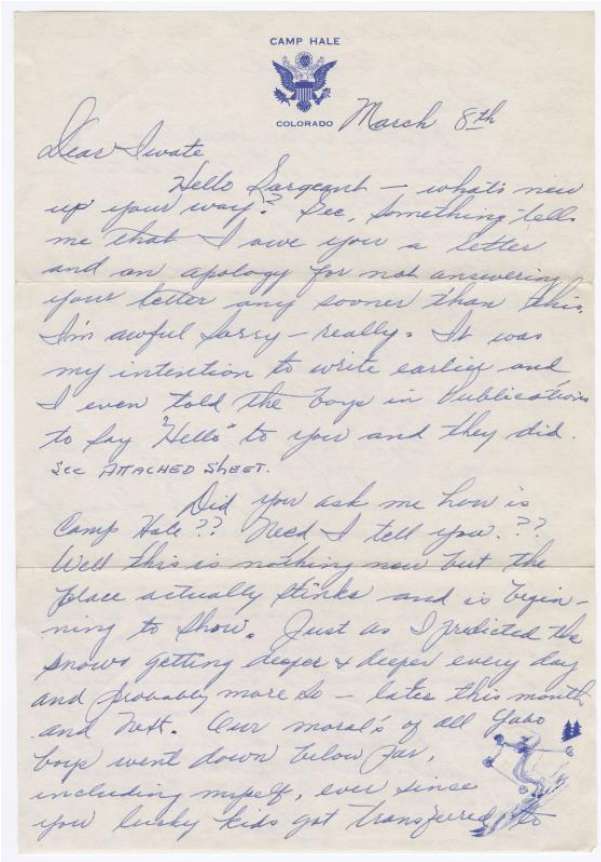 CAMP HALE
COLORADO
March 8th
Dear Iwate
Hello Sargeant – what's new
up your way? Gee, something tells
me that I owe you a letter
and an apology for not answering
your letter any sooner than this.
I'm awful sorry – really. It was
my intention to write earlier and
I even told the boys in Publications
to say "Hello" to you and they did.
SEE ATTACHED SHEET.
Did you ask me how is
Camp Hale?? Need I tell you.??
Well this is nothing new but the
place actually stinks and is begin-
ning to show. Just as I predicted the
snows getting deeper & deeper every day
and probably more so – later this month
and next. Our moral's of all
boys went down below par,
including myself, ever since
you lucky kids got transferred to